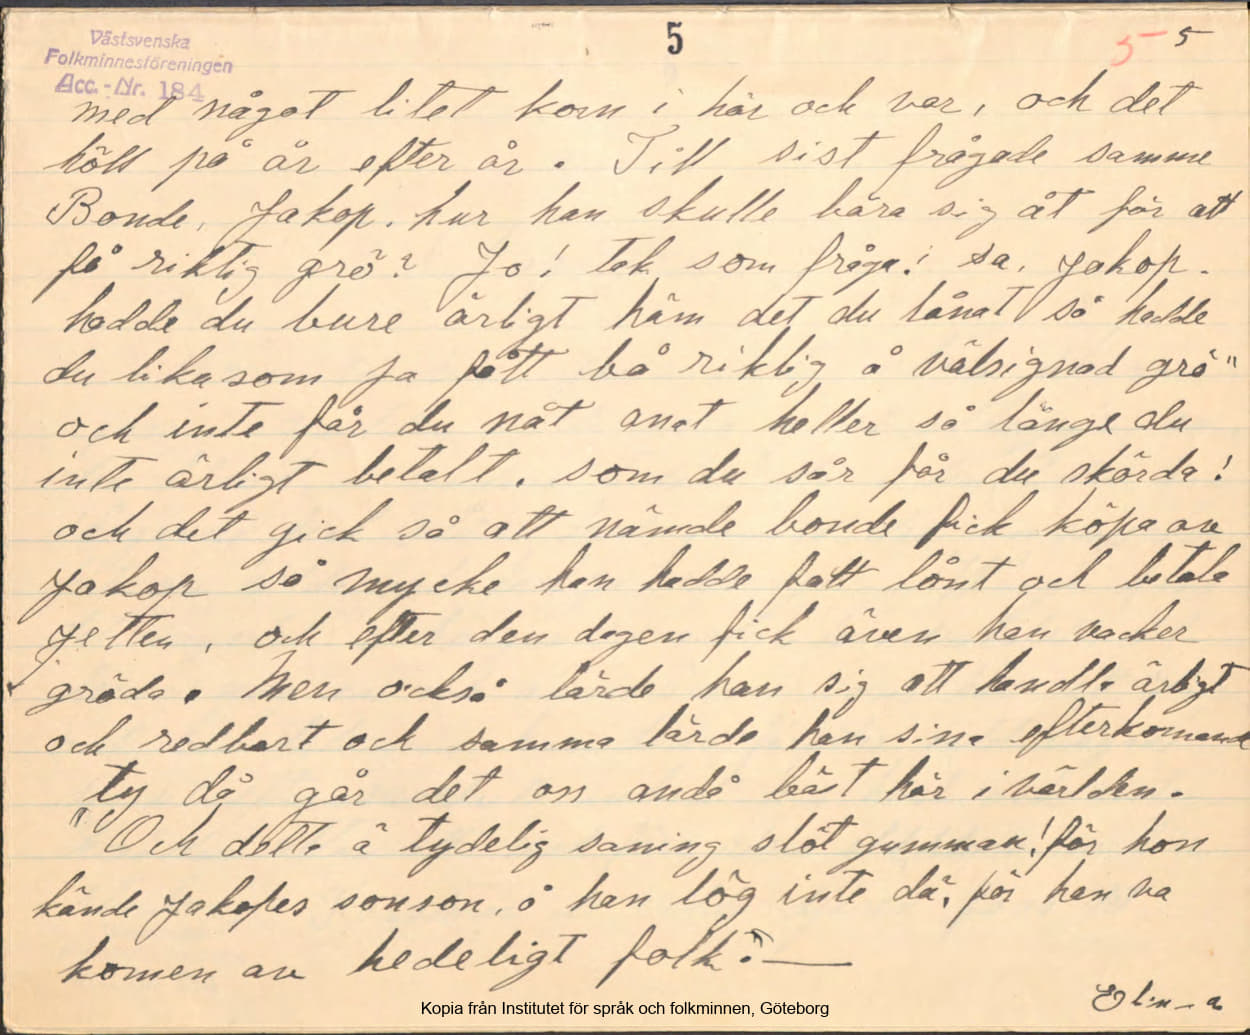 5
5 5
Västsvenska
Folkminnesföreningen
Acc.-Nr. 184
med något litet korn i här och var, och det
höll på år efter år. Till sist frågade samme
Bonde, Jakop. hur han skulle bära sig åt för att
få riktig grö? Jo! tak som fråga! sa. Jakop.
hadde du bure ärligt häm det du lånat så hadde
du lika som ja fått bå riktig å välsignad grö"
och inte får du nåt anat heller så länge du
inte ärligt betalt. som du sår får du skörda!
och det gick så att nämde bonde fick köpa av
Jakop så mycke han hadde fått lånt och betala
Jetten, och efter den dagen fick även han vacker
gröda. Men också lärde han sig att handla ärligt
och redbart och samma lärde han sina efterkomande
ty då går det en ändå bäst här i världen.
"Och detta ä tydelig saning slöt gumman! för hon
kände Jakopes sonson, å han lög inte där, för han va
komen av hedeligt folk."
Kopia från Institutet för språk och folkminnen, Göteborg